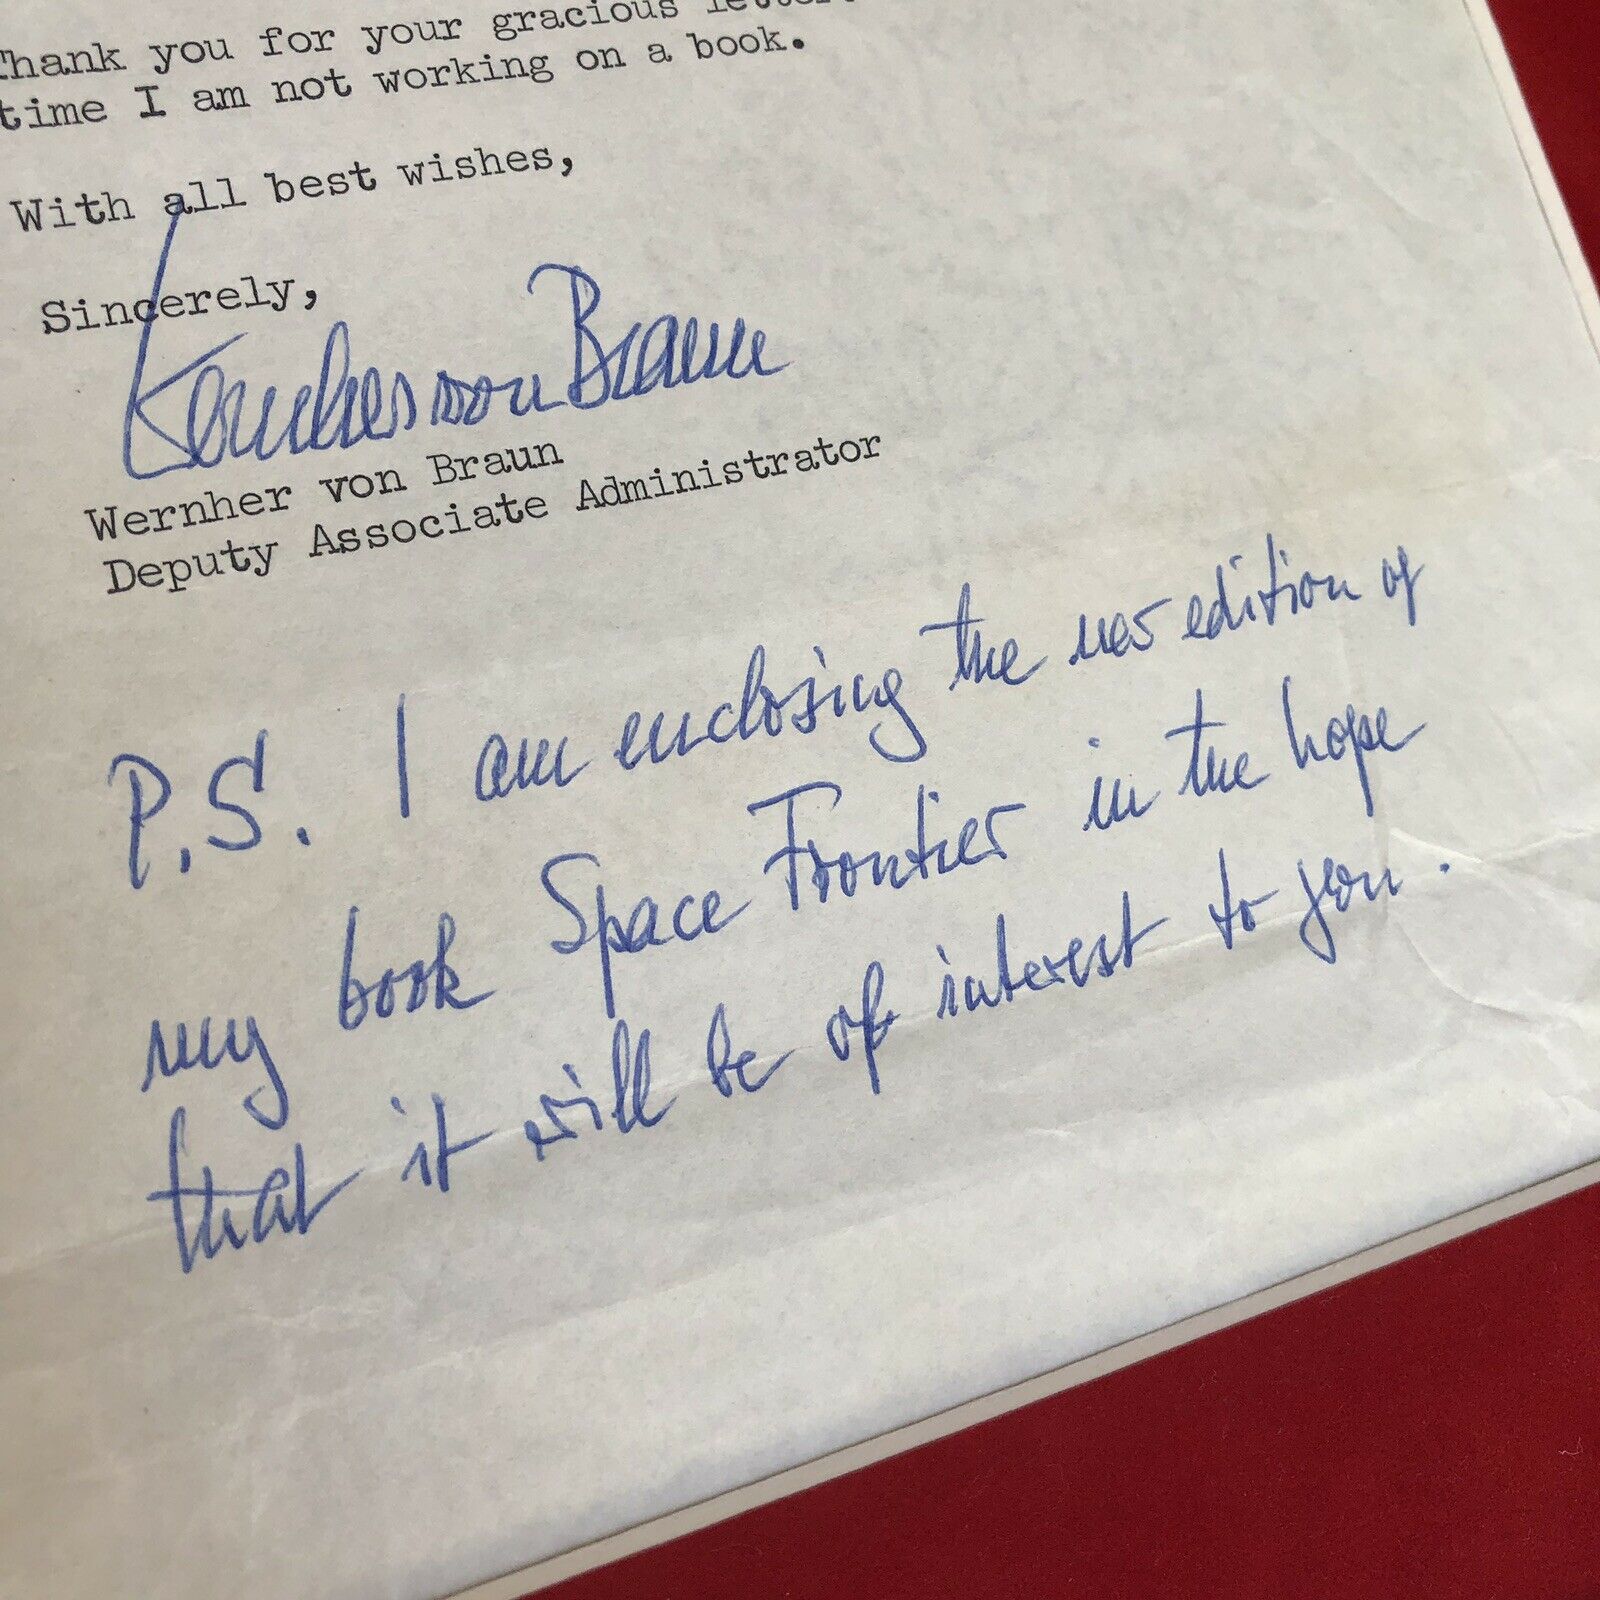 Thank you for your gracious letter.
time I am not working on a book.
With all best wishes,
Sincerely,
Wernher von Braun
Wernher von Braun
Deputy Associate Administrator
P.S. I am enclosing the new edition of
my book Space Frontier in the hope
that it will be of interest to you.